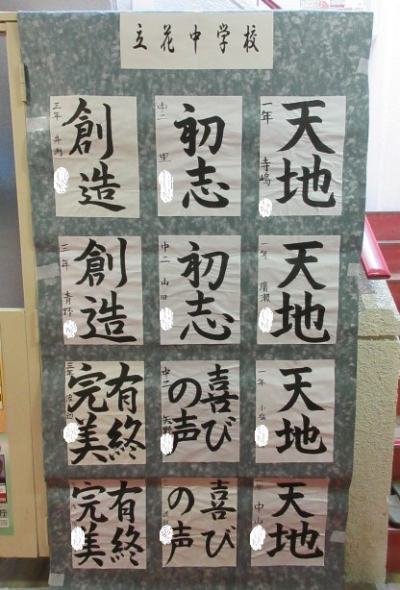 立花中学校
天地
一年 寺嶋
初志
中二 里
創造
三年
天地
一年 廣瀬
初志
中二 山田
創造
三年 青野
天地
一年 小塩
喜び
の声
中二 矢野
有終
完美
三年
天地
中山
喜び
の声
有終
完美